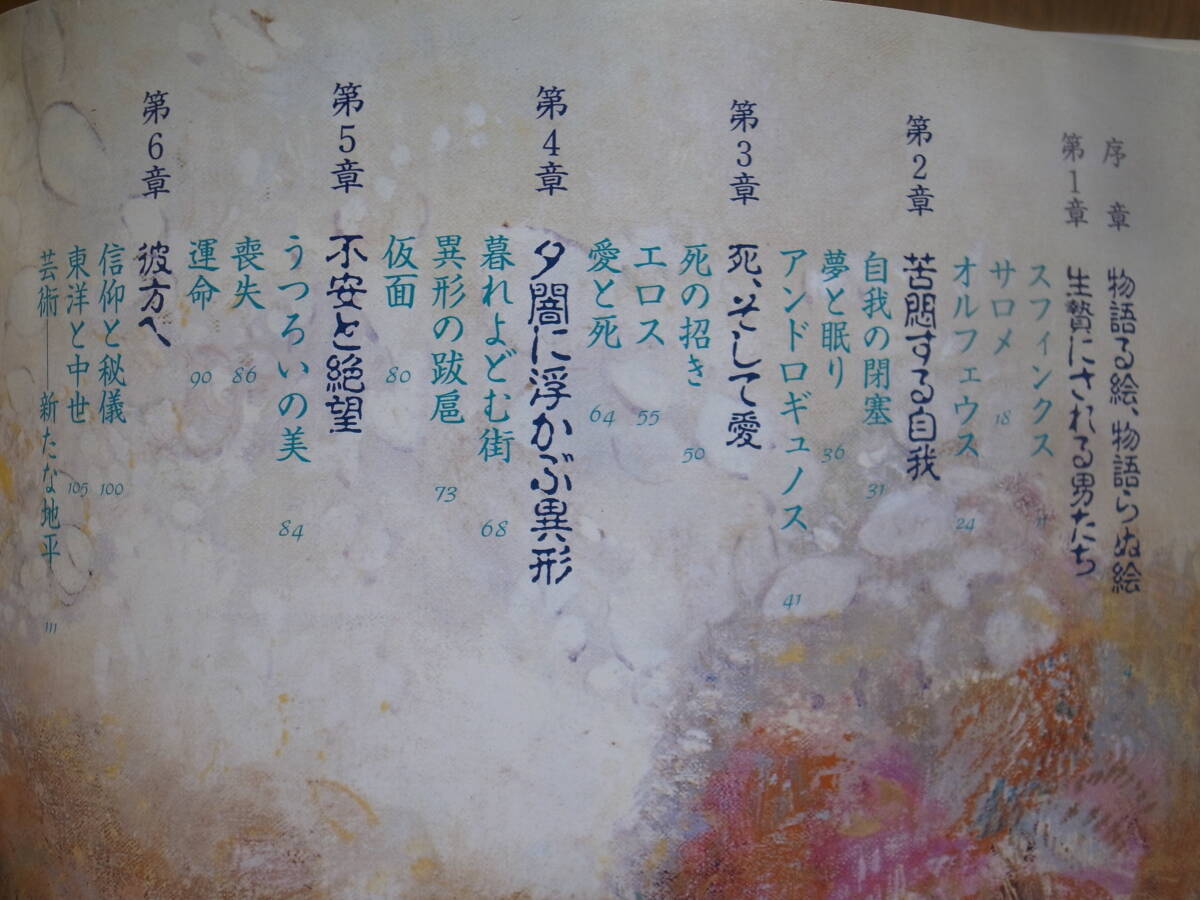 序 章 物語る絵、物語らぬ絵 4
第1章 生贄にされる男たち
スフィンクス 11
サロメ 18
オルフェウス 24
第2章 苦悶する自我
自我の閉塞 31
夢と眠り 36
アンドロギュノス 41
第3章 死、そして愛
死の招き 50
エロス 55
愛と死 64
第4章 夕闇に浮かぶ異形
暮れよどむ街 68
異形の跋扈 73
仮面 80
第5章 不安と絶望
うつろいの美 84
喪失 86
運命 90
第6章 彼方へ
信仰と秘儀 100
東洋と中世 105
芸術——新たな地平 111